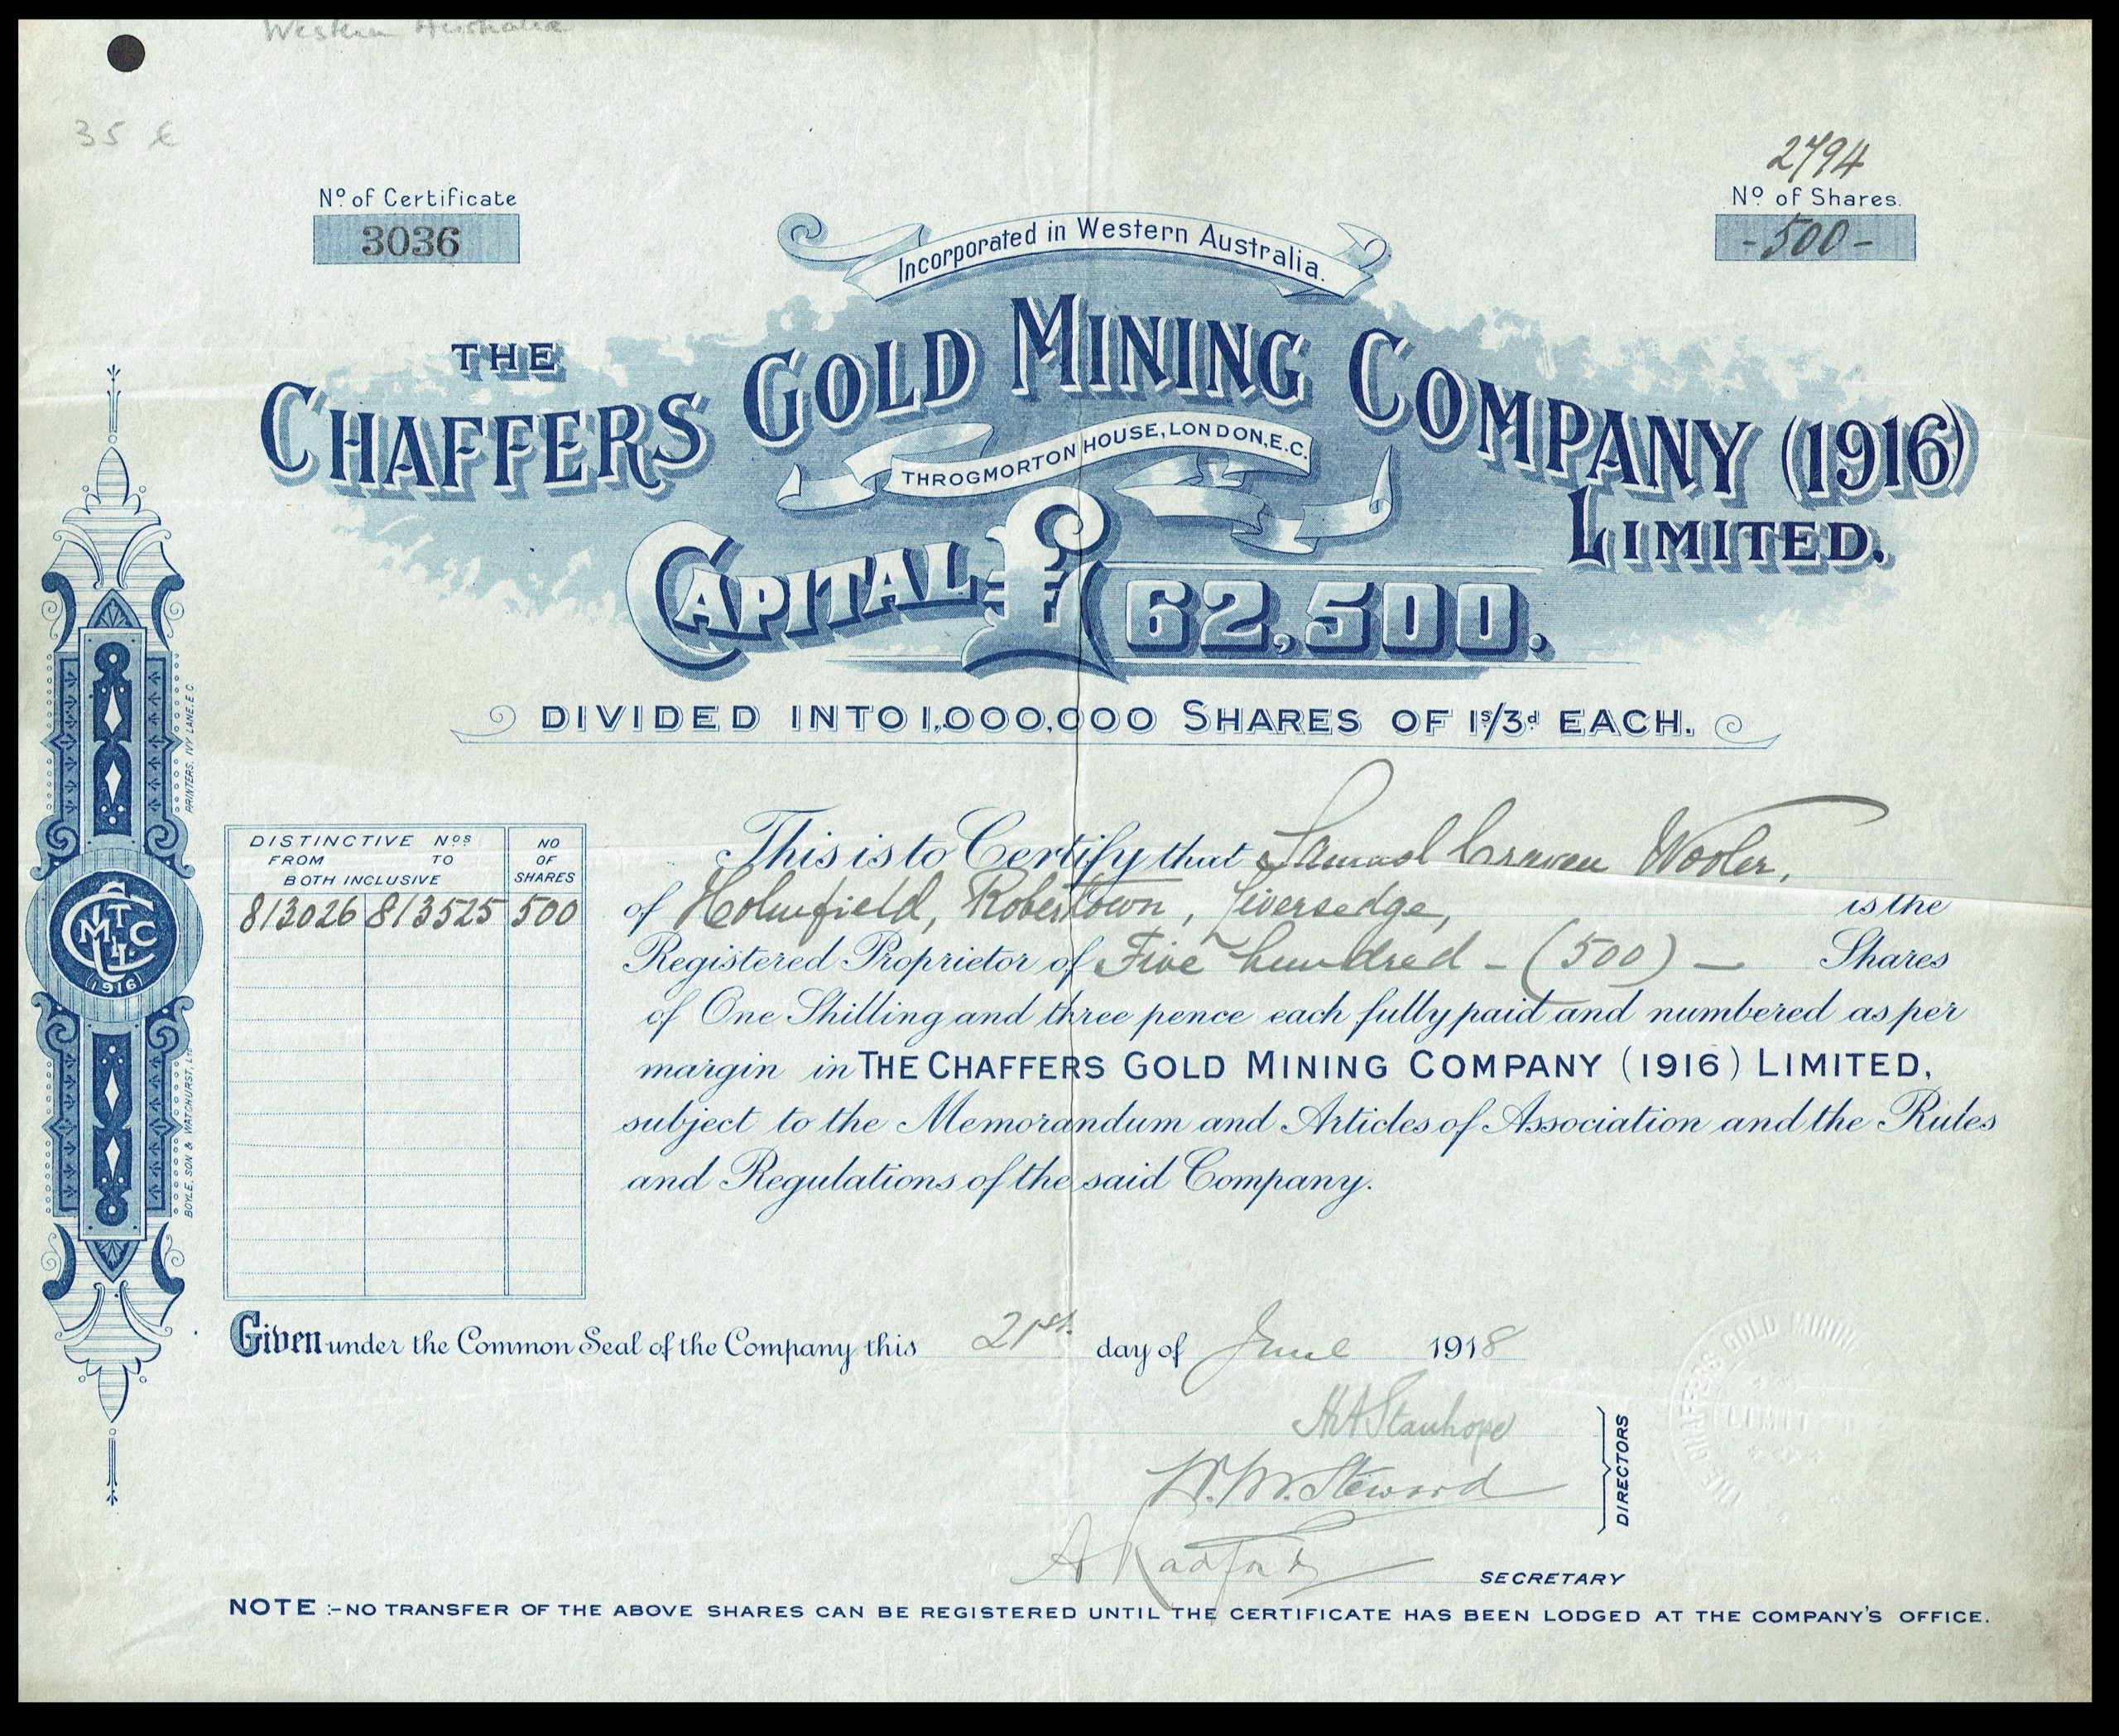 Western Australia
35 €
2794
Nº of Certificate
3036
Nº of Shares.
-500-
Incorporated in Western Australia.
THE
CHAFFERS GOLD MINING COMPANY (1916)
LIMITED.
THROGMORTON HOUSE, LONDON, E.C.
CAPITAL £62,500.
DIVIDED INTO 1,000,000 SHARES OF 1s/3d EACH.
DISTINCTIVE Nos
FROM TO
BOTH INCLUSIVE
NO
OF
SHARES
813026 813525 500
This is to Certify that Samuel Craven Wooler,
of Holmfield, Robertown, Liversedge, is the
Registered Proprietor of Five hundred - (500) - Shares
of One Shilling and three pence each fully paid and numbered as per
margin in THE CHAFFERS GOLD MINING COMPANY (1916) LIMITED,
subject to the Memorandum and Articles of Association and the Rules
and Regulations of the said Company.
(1916)
PRINTERS, IVY LANE, E.C.
BOYLE, SON & WATCHURST, LTD
Given under the Common Seal of the Company this 21st. day of June 1918
H A Stanhope
W. M. Steward
DIRECTORS
A Radford
SECRETARY
THE CHAFFERS GOLD MINING
LIMIT
NOTE :- NO TRANSFER OF THE ABOVE SHARES CAN BE REGISTERED UNTIL THE CERTIFICATE HAS BEEN LODGED AT THE COMPANY'S OFFICE.